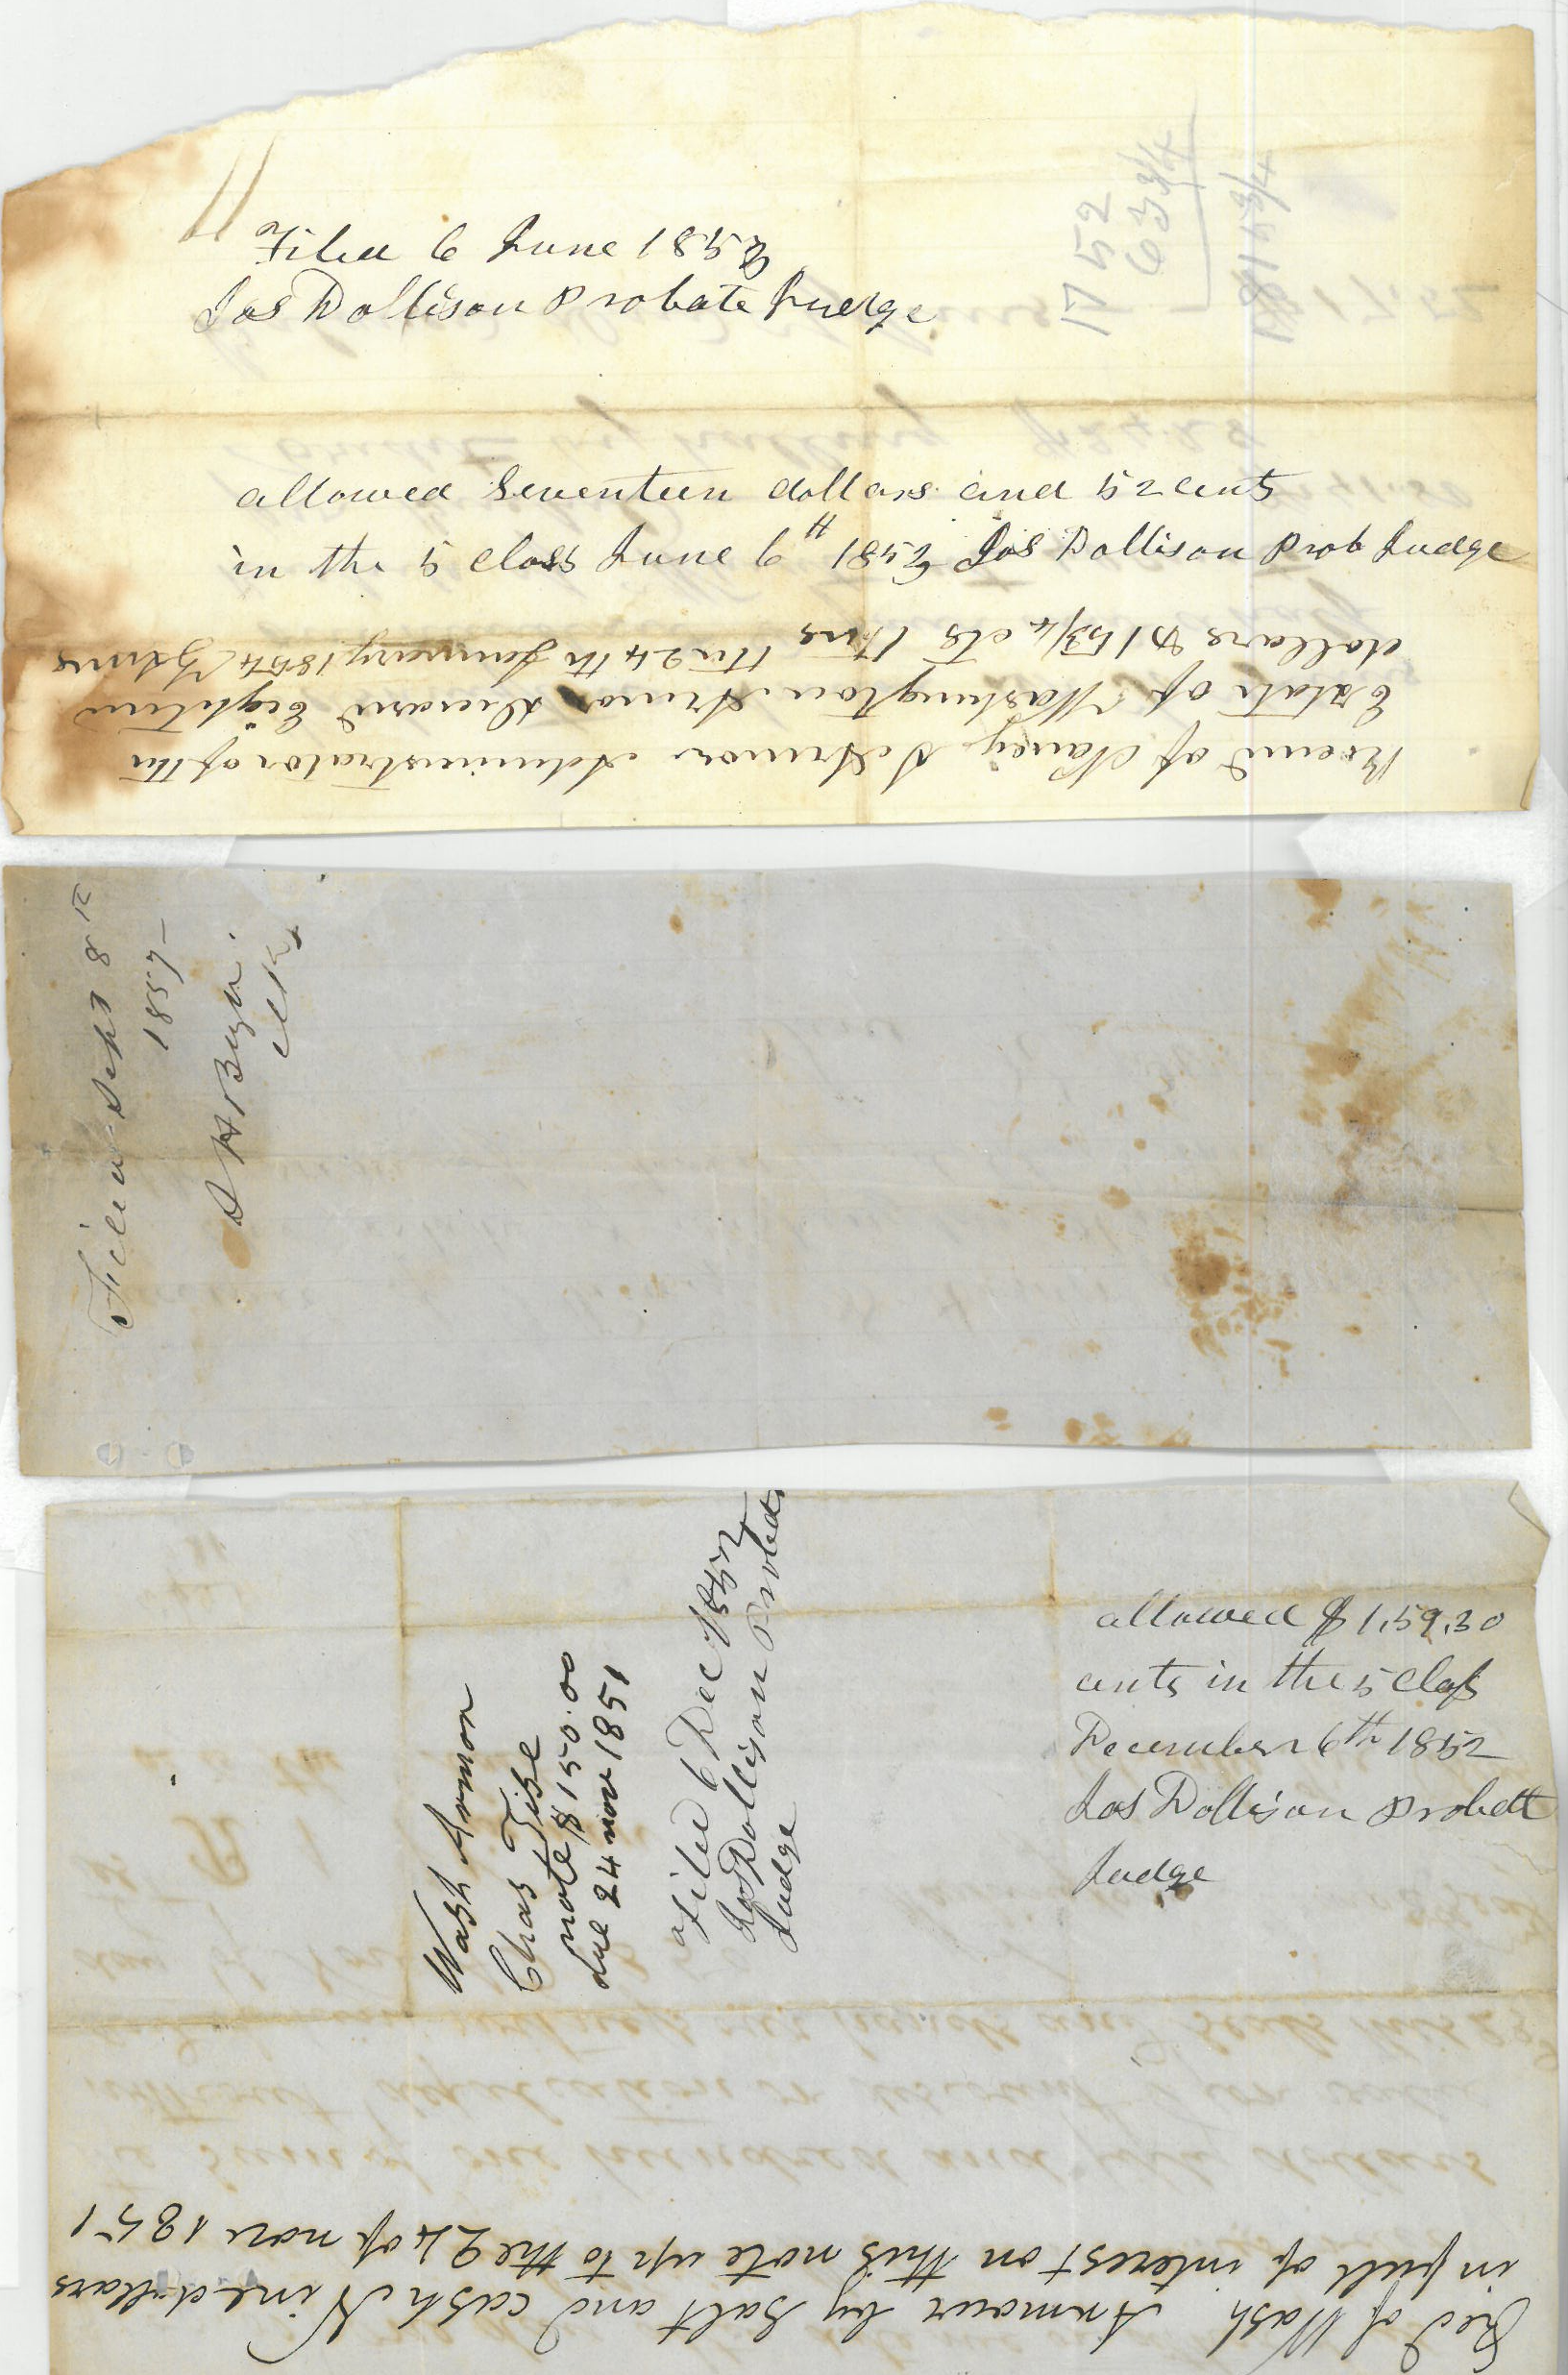 Filed 6 June 1853
Jas Dollison Probate Judge
17 52
63 3/4
18 15 3/4
17.52
allowed Seventeen dollars and 52 cents
in the 5 class June 6th 1853 Jas Dollison Prob Judge
Receivd of Nancy Armor Administrator of the
Estate of Washington Armor Deceasd Eighteen
dollars & 15 3/4 cts this the 24th January 1854
Filed Sept 8th
1857
clk
Wash Armor
Chas Tise
note $150.00
due 24 nov 1851
Filed 6 Dec 1852
Jas Dollison Probate
Judge
allowed $1,59.30
cents in the 5 Class
December 6th 1852
Jas Dollison Probett
Judge
Recd of Wash Armour by Salt and cash Nine dollars
in full of interest on this note up to the 24 of nov 1851